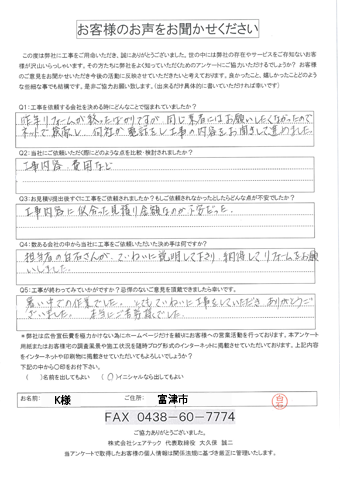 お客様のお声をお聞かせください
この度は弊社に工事をご用命いただき、誠にありがとうございました。世の中には弊社の存在やサービスをご存知ないお客
様が沢山いらっしゃいます。その方たちに弊社をよく知っていただくためのアンケートにご協力いただけるでしょうか？お客様
のご意見をお聞かせいただき今後の活動に反映させていただきたいと考えております。良かったこと、嬉しかったことどのよう
な些細な事でも結構です。是非ご協力お願い致します。（出来るだけ具体的に書いていただければ幸いです）
Q1：工事を依頼する会社を決める時にどんなことで悩まれていましたか？
昨年リフォームが終ったばかりですが、同じ業者にはお願いしたくなかったので
ネットで検索し、何社か電話をし工事の内容をお聞きして進めました。
Q2：当社にご依頼いただく際にどのような点を比較・検討されましたか？
工事内容、費用など
Q3：お見積り提出後すぐにご依頼をされましたか？もしご依頼されなかったとしたらどんな点が不安でしたか？
工事内容に似合った見積り金額なのか不安だった。
Q4：数ある会社の中から当社に工事をご依頼いただいた決め手は何ですか？
担当者の白石さんが、ていねいに説明して下さり、納得してリフォームをお願
いしました。
Q5：工事が終わってみていかがですか？忌憚のないご意見を頂戴できましたら幸いです。
暑い中での作業でした。とてもていねいに工事をしていただき ありがとうご
ざいました。本当にご苦労様でした。
＊弊社は広告宣伝費を極力かけない為にホームページだけを頼りにお客様への営業活動を行っております。本アンケート
用紙またはお客様宅の調査風景や施工状況を随時ブログ形式のインターネットに掲載させていただいております。上記内容
をインターネットや印刷物に掲載させていただいてもよろしいでしょうか？
下記の中から〇印をお付下さい。
（　）名前を出してもよい　（〇）イニシャルなら出してもよい
お名前： K様 ご住所： 富津市
FAX 0438-60-7774
ご協力ありがとうございました。
株式会社シェアテック 代表取締役 大久保 誠二
当アンケートで取得したお客様の個人情報は関係法規に基づき厳正に管理いたします。